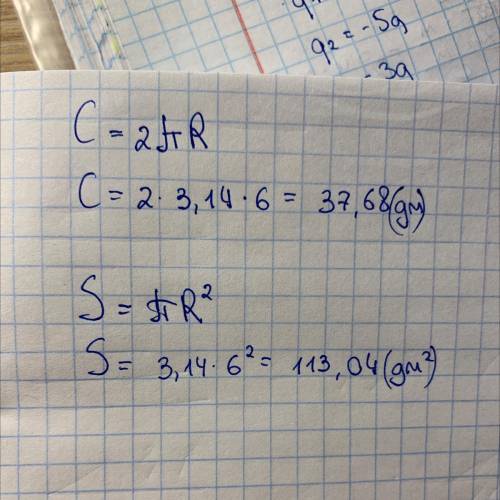 q₂ = -5q
- 3q
C = 2πR
C = 2 · 3,14 · 6 = 37,68 (дм)
S = πR²
S = 3,14 · 6² = 113,04 (дм²)